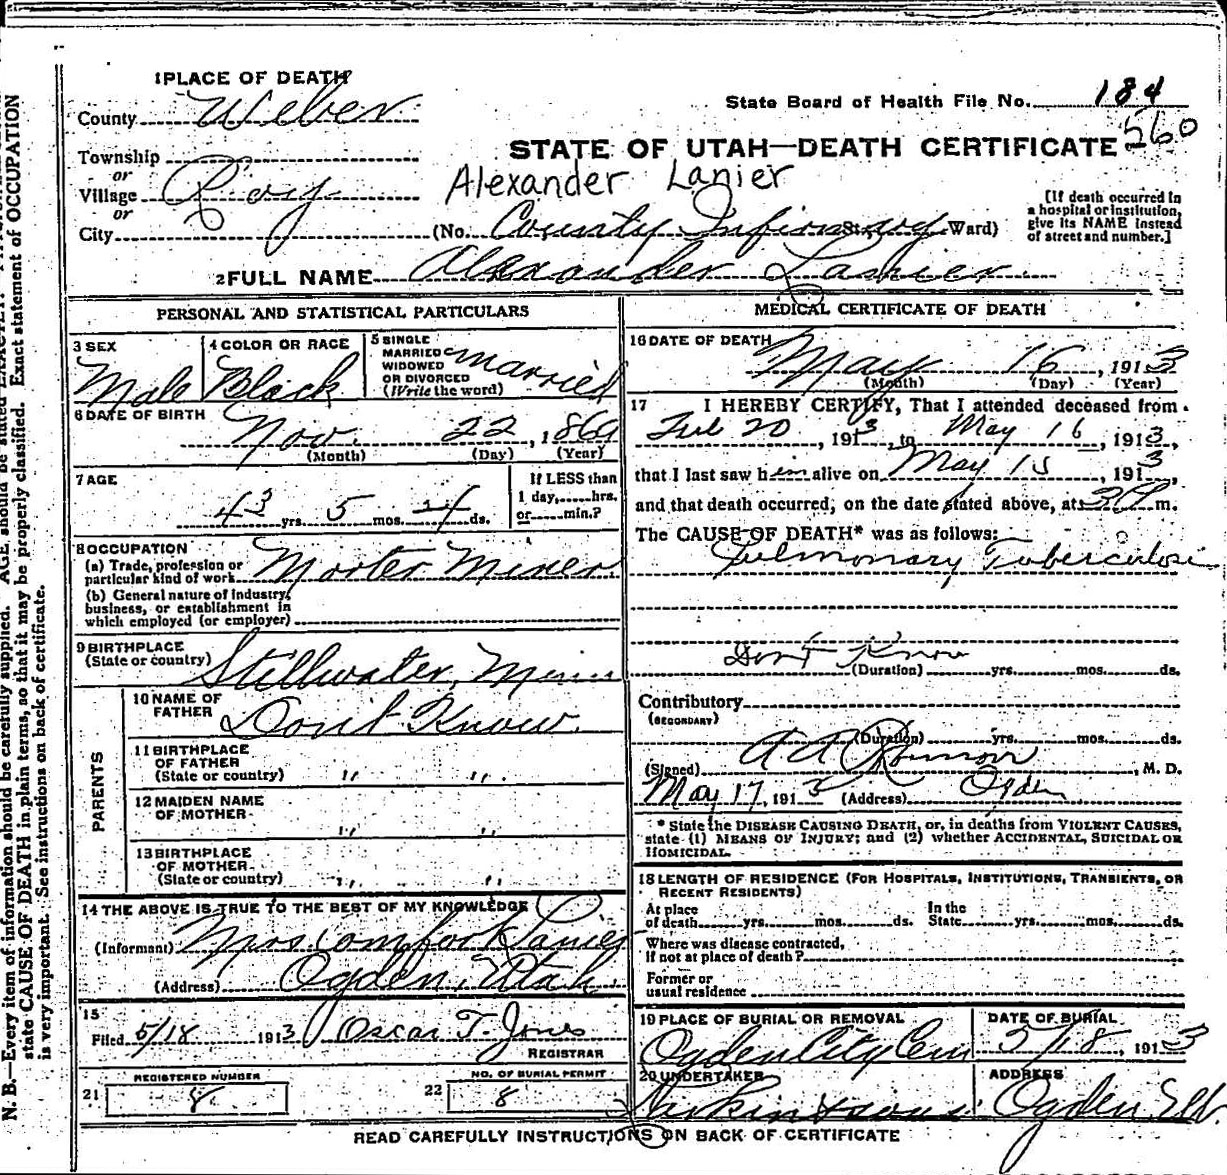 1 PLACE OF DEATH
County Weber
State Board of Health File No. 184
560
Township
or
Village Roy
or
City
STATE OF UTAH—DEATH CERTIFICATE
Alexander Lanier
(No. County Infirmary St. Ward)
[If death occurred in
a hospital or institution,
give its NAME instead
of street and number.]
2 FULL NAME Alexander Lanier
PERSONAL AND STATISTICAL PARTICULARS
3 SEX
Male
4 COLOR OR RACE
Black
5 SINGLE
MARRIED
WIDOWED
OR DIVORCED
(Write the word)
married
6 DATE OF BIRTH
Nov. 22, 1869
(Month) (Day) (Year)
7 AGE
43 yrs. 5 mos. 24 ds.
If LESS than
1 day,......hrs.
or......min.?
8 OCCUPATION
(a) Trade, profession or
particular kind of work Morter Mixer
(b) General nature of industry,
business, or establishment in
which employed (or employer)
9 BIRTHPLACE
(State or country) Stillwater, Minn
PARENTS
10 NAME OF
FATHER Don't Know.
11 BIRTHPLACE
OF FATHER
(State or country) " "
12 MAIDEN NAME
OF MOTHER " "
13 BIRTHPLACE
OF MOTHER
(State or country) " "
14 THE ABOVE IS TRUE TO THE BEST OF MY KNOWLEDGE
(Informant) Mrs. Lanier
(Address) Ogden, Utah
15
Filed 5/18 1913 Oscar T. Jones
REGISTRAR
REGISTERED NUMBER
21 8
NO. OF BURIAL PERMIT
22 8
MEDICAL CERTIFICATE OF DEATH
16 DATE OF DEATH
May 16, 1913
(Month) (Day) (Year)
17 I HEREBY CERTIFY, That I attended deceased from
20, 1913, to May 16, 1913,
that I last saw him alive on May 15, 1913,
and that death occurred, on the date stated above, at 3 P m.
The CAUSE OF DEATH* was as follows:
Pulmonary Tuberculosis
Don't Know
(Duration) yrs. mos. ds.
Contributory
(SECONDARY)
(Duration) yrs. mos. ds.
(Signed) A A Robinson, M. D.
May 17, 1913 (Address) Ogden
* State the DISEASE CAUSING DEATH, or, in deaths from VIOLENT CAUSES,
state (1) MEANS OF INJURY; and (2) whether ACCIDENTAL, SUICIDAL OR
HOMICIDAL.
18 LENGTH OF RESIDENCE (FOR HOSPITALS, INSTITUTIONS, TRANSIENTS, OR
RECENT RESIDENTS)
At place
of death yrs. mos. ds.
In the
State yrs. mos. ds.
Where was disease contracted,
if not at place of death?
Former or
usual residence
19 PLACE OF BURIAL OR REMOVAL
Ogden City Cem
DATE OF BURIAL
5/18, 1913
20 UNDERTAKER
ADDRESS
Ogden
READ CAREFULLY INSTRUCTIONS ON BACK OF CERTIFICATE
N. B.—Every item of information should be carefully supplied. AGE should be stated EXACTLY.
state CAUSE OF DEATH in plain terms, so that it may be properly classified. Exact statement of OCCUPATION
is very important. See instructions on back of certificate.